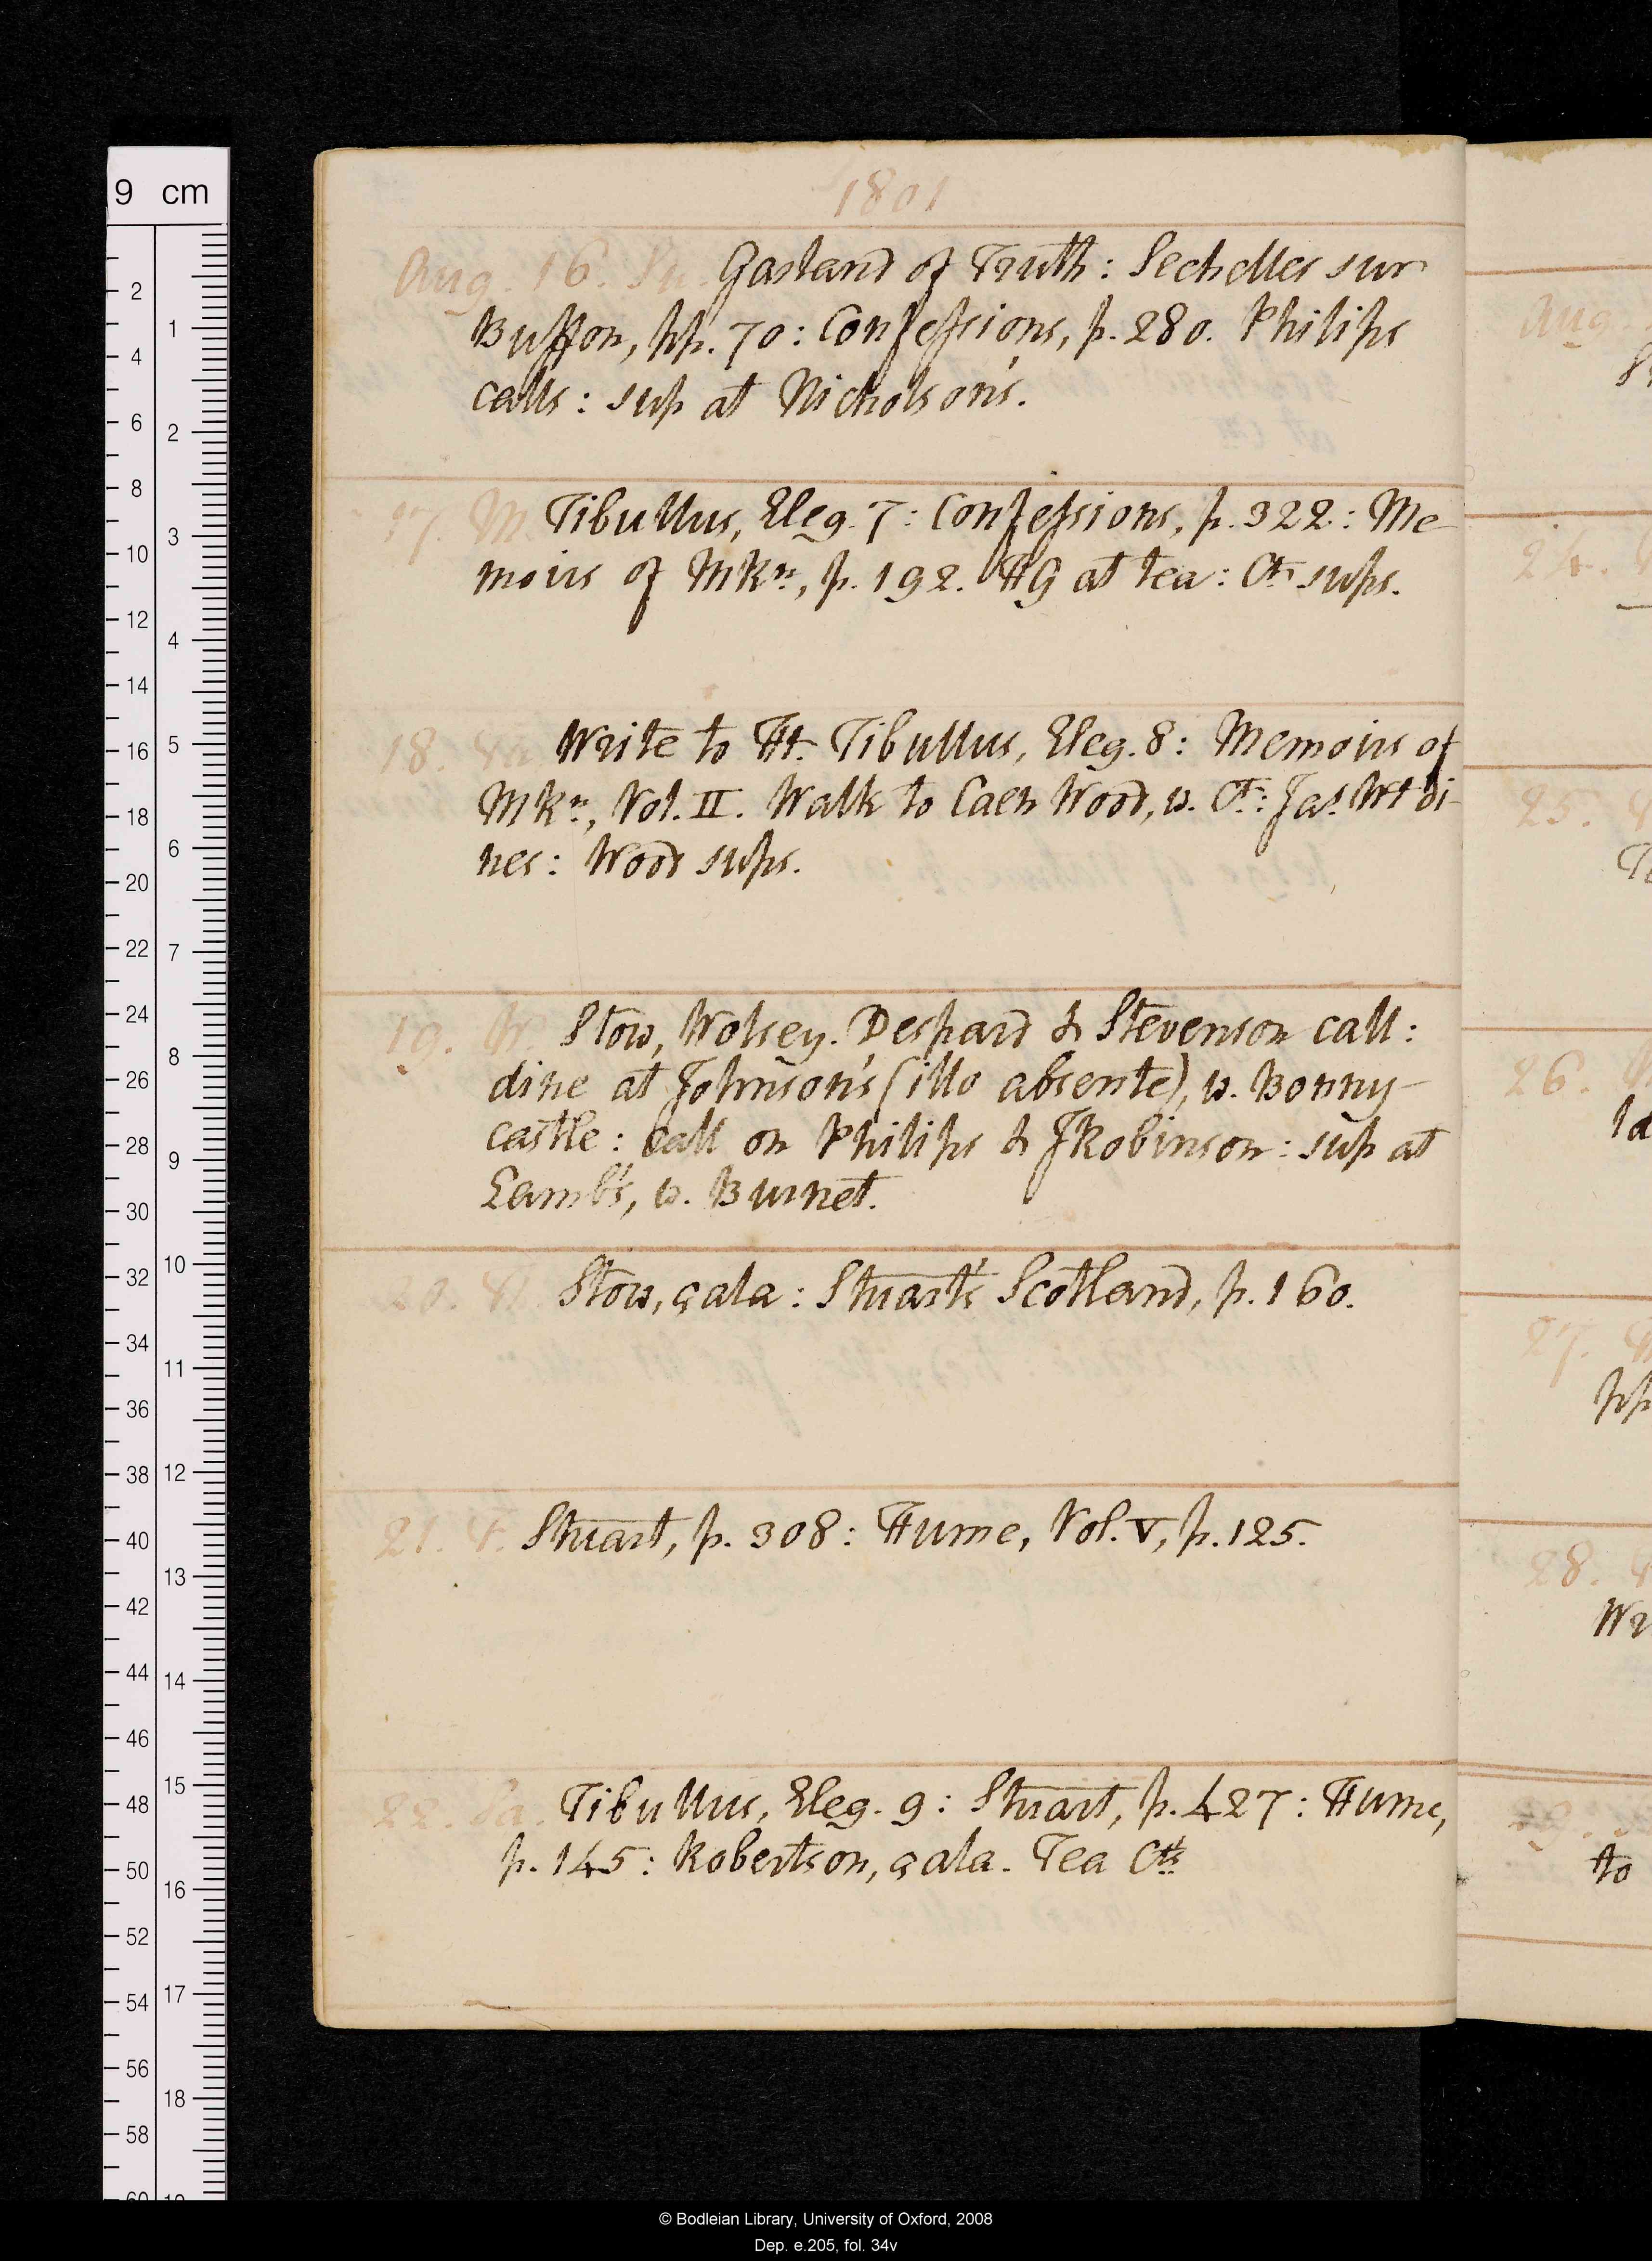 1801
Aug. 16. Su. Garland of Truth: Sechelles sur
Buffon, pp. 70: Confessions, p. 280. Philips
calls: sup at Nicholson's.
17. M. Tibullus, Eleg. 7: Confessions, p. 322: Me-
moirs of MKn, p. 192. HG at tea: Ct sups.
18. Tu Write to Ht. Tibullus, Eleg. 8: Memoirs of
MKn, Vol. II. Walk to Caen Wood, w. Ct: Jas Wt di-
nes: Woods sups.
19. W. Stow, Wolsey. Despard & Stevenson call:
dine at Johnson's (illo absente), w. Bonny-
castle: call on Philips & JRobinson: sup at
Lamb's, w. Burnet.
20. Stow, çala: Stuart's Scotland, p. 160.
21. F. Stuart, p. 308: Hume, Vol. V, p. 125.
22. Sa. Tibullus, Eleg. 9: Stuart, p. 427: Hume,
p. 145: Robertson, çala. Tea Cts
Aug.
24.
25.
26.
27.
pp
28.
to
9 cm
© Bodleian Library, University of Oxford, 2008
Dep. e.205, fol. 34v